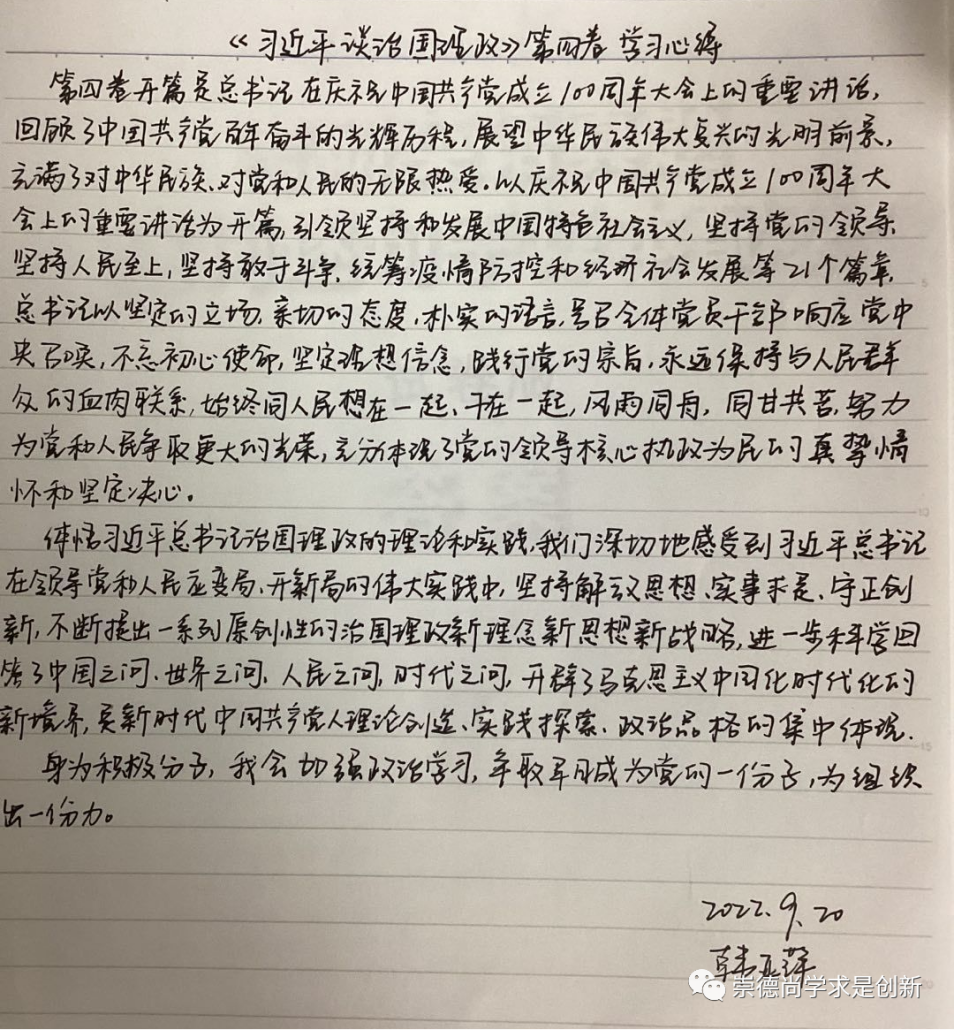 《习近平谈治国理政》第四卷 学习心得
第四卷开篇是总书记在庆祝中国共产党成立100周年大会上的重要讲话,
回顾了中国共产党百年奋斗的光辉历程,展望中华民族伟大复兴的光明前景,
充满了对中华民族、对党和人民的无限热爱。以庆祝中国共产党成立100周年大
会上的重要讲话为开篇,引领坚持和发展中国特色社会主义,坚持党的领导、
坚持人民至上,坚持敢于斗争、统筹疫情防控和经济社会发展等21个篇章,
总书记以坚定的立场、亲切的态度,朴实的语言,号召全体党员干部响应党中
央召唤,不忘初心使命,坚定理想信念,践行党的宗旨,永远保持与人民群
众的血肉联系,始终同人民想在一起、干在一起,风雨同舟,同甘共苦,努力
为党和人民争取更大的光荣,充分体现了党的领导核心执政为民的真挚情
怀和坚定决心。
体悟习近平总书记治国理政的理论和实践,我们深切地感受到习近平总书记
在领导党和人民应变局、开新局的伟大实践中,坚持解放思想、实事求是、守正创
新,不断提出一系列原创性的治国理政新理念新思想新战略,进一步科学回
答了中国之问、世界之问、人民之问,时代之问,开辟了马克思主义中国化时代化的
新境界,是新时代中国共产党人理论创造、实践探索、政治品格的集中体现.
身为积极分子,我会加强政治学习,争取早日成为党的一份子,为组织
出一份力。
2022.9.20
韩亚萍
崇德尚学求是创新